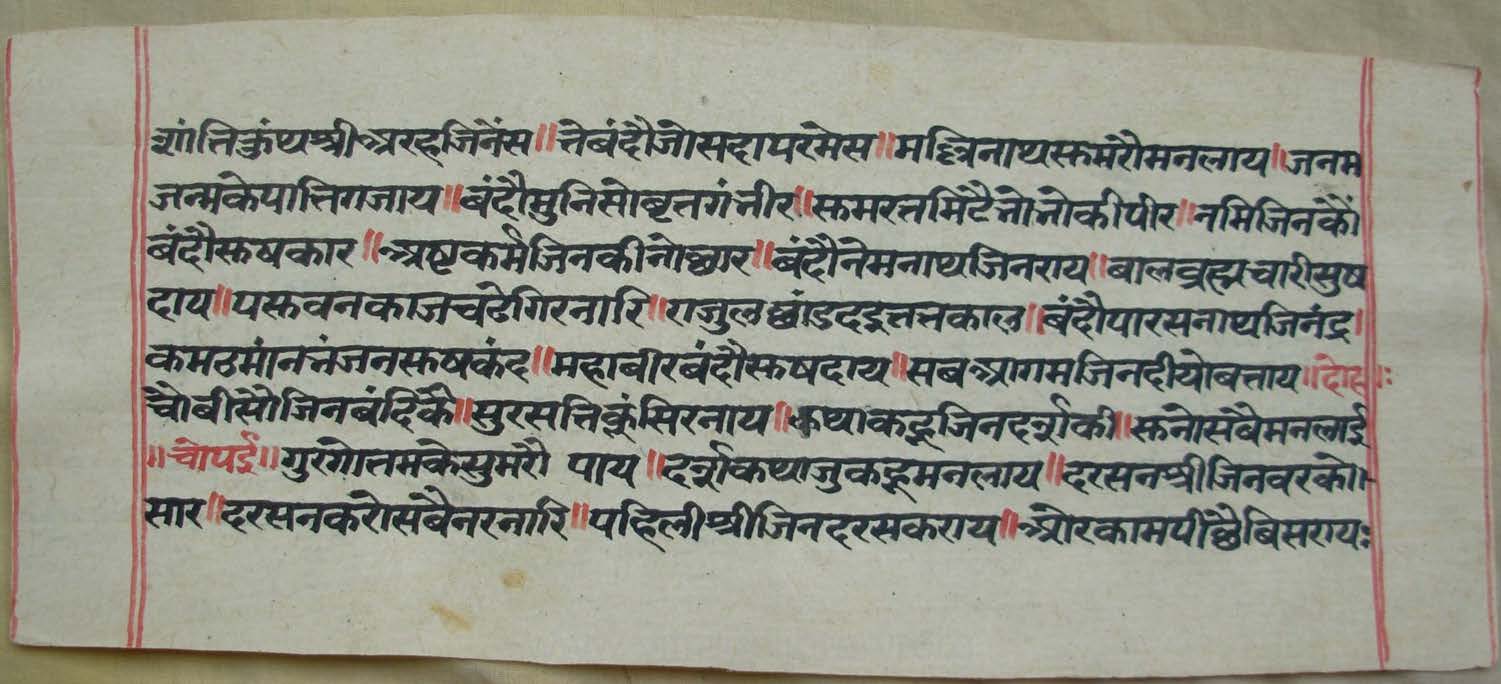 शांतिकुंथश्रीअरहजिनेंस॥तेबंदौजोसदापरमेस॥मल्लिनाथसुमंरौमनलाय॥जनम
जन्मकेपातिगजाय॥बंदौमुनिसोबृतगंभीर॥सुमरतमिटैभोभोकीपीर॥नमिजिनकौं
बंदौसुषकार॥अष्टकर्मजिनकीनोछार॥बंदौनेमनाथजिनराय॥बालब्रह्मचारीसुष
दाय॥पसुवनकाजचढेगिरनारि॥राजुलछांडदईततकाल॥बंदौपारसनाथजिनंद्र।
कमठमांनभंजनसुषकंद॥महाबीरबंदौसुषदाय॥सबआगमजिनदीयोबताय॥दोहा॥ः
चौबीसौजिनबंदिकै॥सुरसतिकूंसिरनाय॥कथाकहूजिनदर्शाकी॥सुनोसबैमनलाई
॥चोपई॥गुरगोतमकेसुमरौ पाय॥दर्शकथाजुकहूमनलाय॥दरसनश्रीजिनवरको।
सार॥दरसनकरोसबैनरनारि॥पहिलीश्रीजिनदरसकराय॥ओरकामपीछैबिसरायः